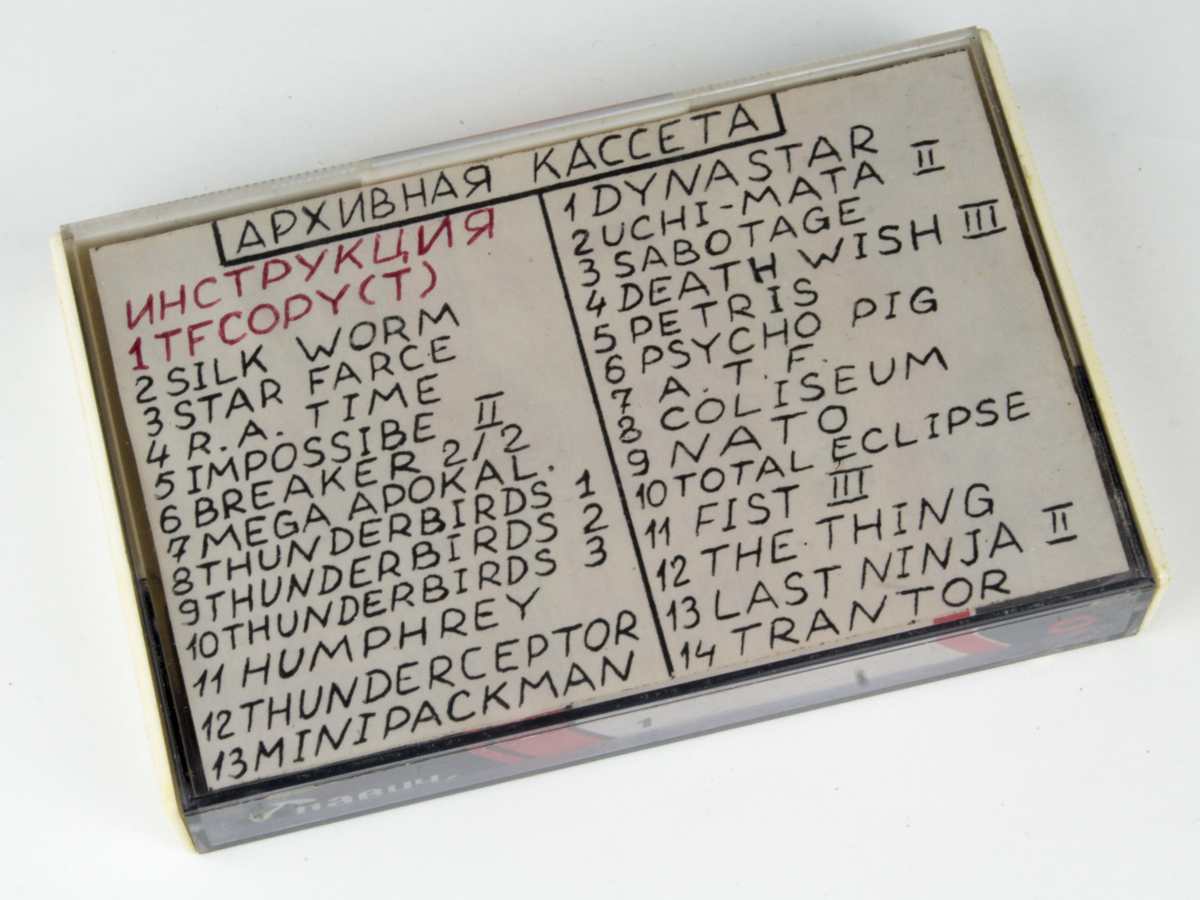 АРХИВНАЯ КАССЕТА
ИНСТРУКЦИЯ
1 TFCOPY(T)
2 SILK WORM
3 STAR FARCE
4 R. A. TIME
5 IMPOSSIBE II
6 BREAKER 2/2
7 MEGA APOKAL.
8 THUNDERBIRDS 1
9 THUNDERBIRDS 2
10 THUNDERBIRDS 3
11 HUMPHREY
12 THUNDERCEPTOR
13 MINIPACKMAN
1 DYNASTAR II
2 UCHI-MATA
3 SABOTAGE
4 DEATH WISH III
5 PETRIS
6 PSYCHO PIG
7 A. T. F.
8 COLISEUM
9 NATO
10 TOTAL ECLIPSE
11 FIST III
12 THE THING
13 LAST NINJA II
14 TRANTOR